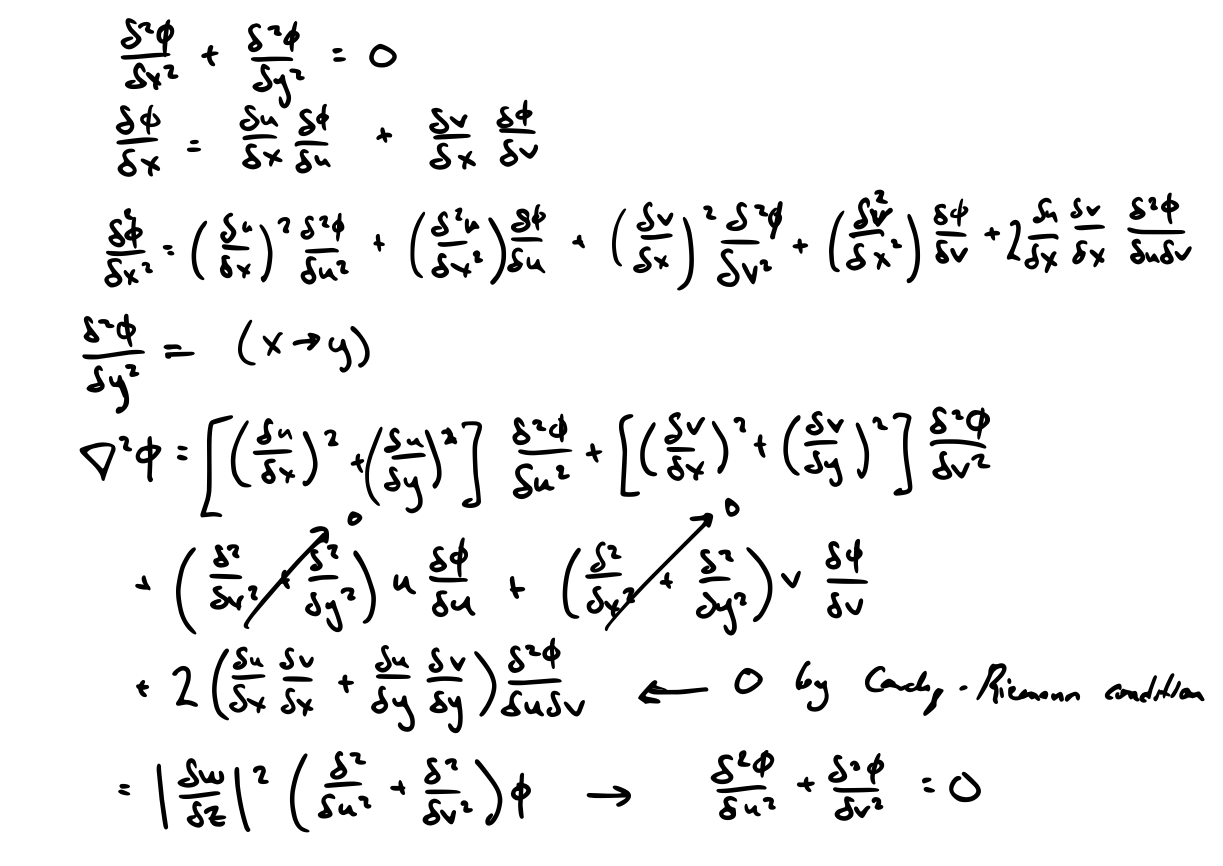 δ²ϕ/δx² + δ²ϕ/δy² = 0
δϕ/δx = δu/δx δϕ/δu + δv/δx δϕ/δv
δ²ϕ/δx² = (δu/δx)² δ²ϕ/δu² + (δ²u/δx²) δϕ/δu + (δv/δx)² δ²ϕ/δv² + (δ²v/δx²) δϕ/δv + 2 δu/δx δv/δx δ²ϕ/δuδv
δ²ϕ/δy² = (x → y)
∇²ϕ = [(δu/δx)² + (δu/δy)²] δ²ϕ/δu² + [(δv/δx)² + (δv/δy)²] δ²ϕ/δv²
+ (δ²/δv² + δ²/δy²) u δϕ/δu ↗0 + (δ²/δx² + δ²/δy²) v δϕ/δv ↗0
+ 2 (δu/δx δv/δx + δu/δy δv/δy) δ²ϕ/δuδv ← 0 by Cauchy-Riemann condition
= |δw/δz|² (δ²/δu² + δ²/δv²) ϕ → δ²ϕ/δu² + δ²ϕ/δv² = 0